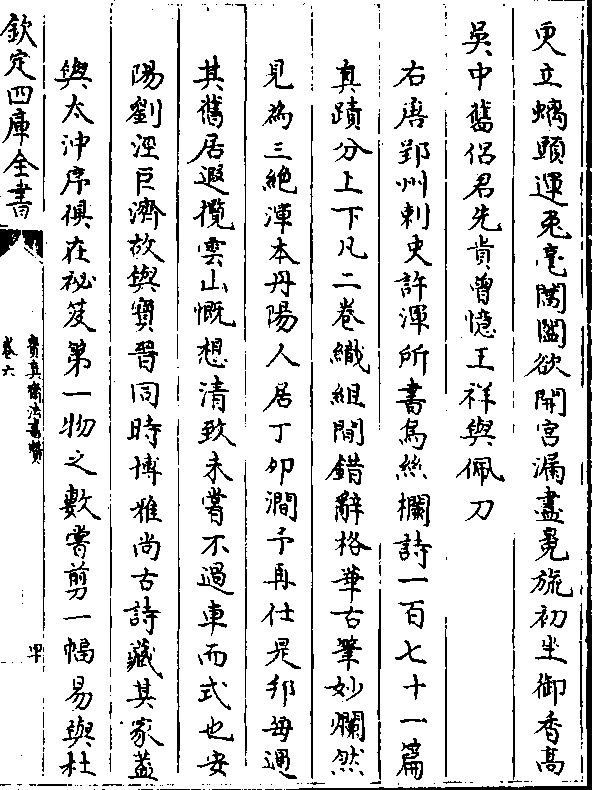 更立螭頭運兎毫閶闔欲開宫漏盡冕旒初坐御香髙
吳中舊侶君先貴曾憶王祥與佩刀
右唐郢州刺史許渾所書烏絲欄詩一百七十一篇
真蹟分上下凡二卷織組間錯辭格華古筆妙爛然
見為三絶渾本丹陽人居丁卯澗予再仕是邦每過
其舊居遐攬雲山慨想清致未嘗不過車而式也安
陽劉涇巨濟故與寶晉同時博雅尚古詩藏其家葢
與太沖序俱在祕笈第一物之數嘗剪一幅易與杜
欽定四庫全書
寳真齋法書贊
卷六